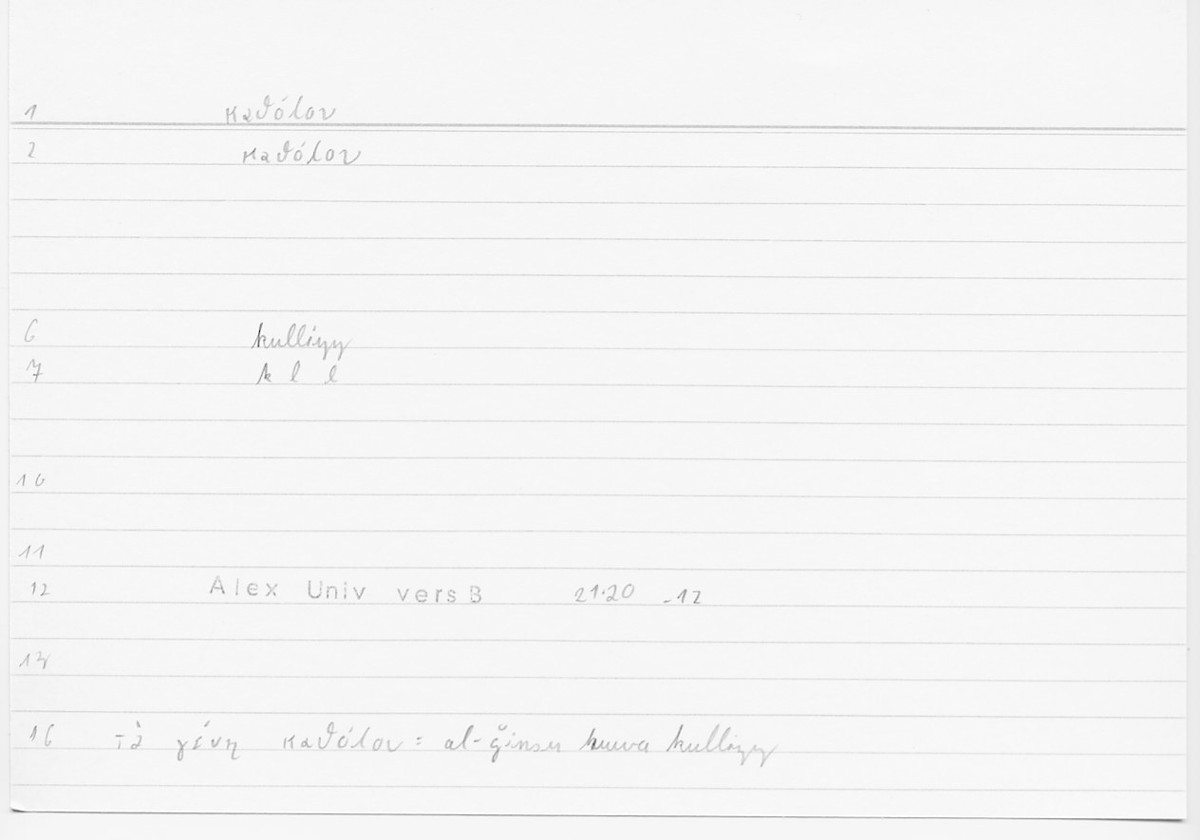 1 καθόλου
2 καθόλου
6 kulliyy
7 k l l
10
11
12 Alex Univ vers B 21.20 -12
14
16 τὰ γένη καθόλου = al-ǧinsu huwa kulliyy